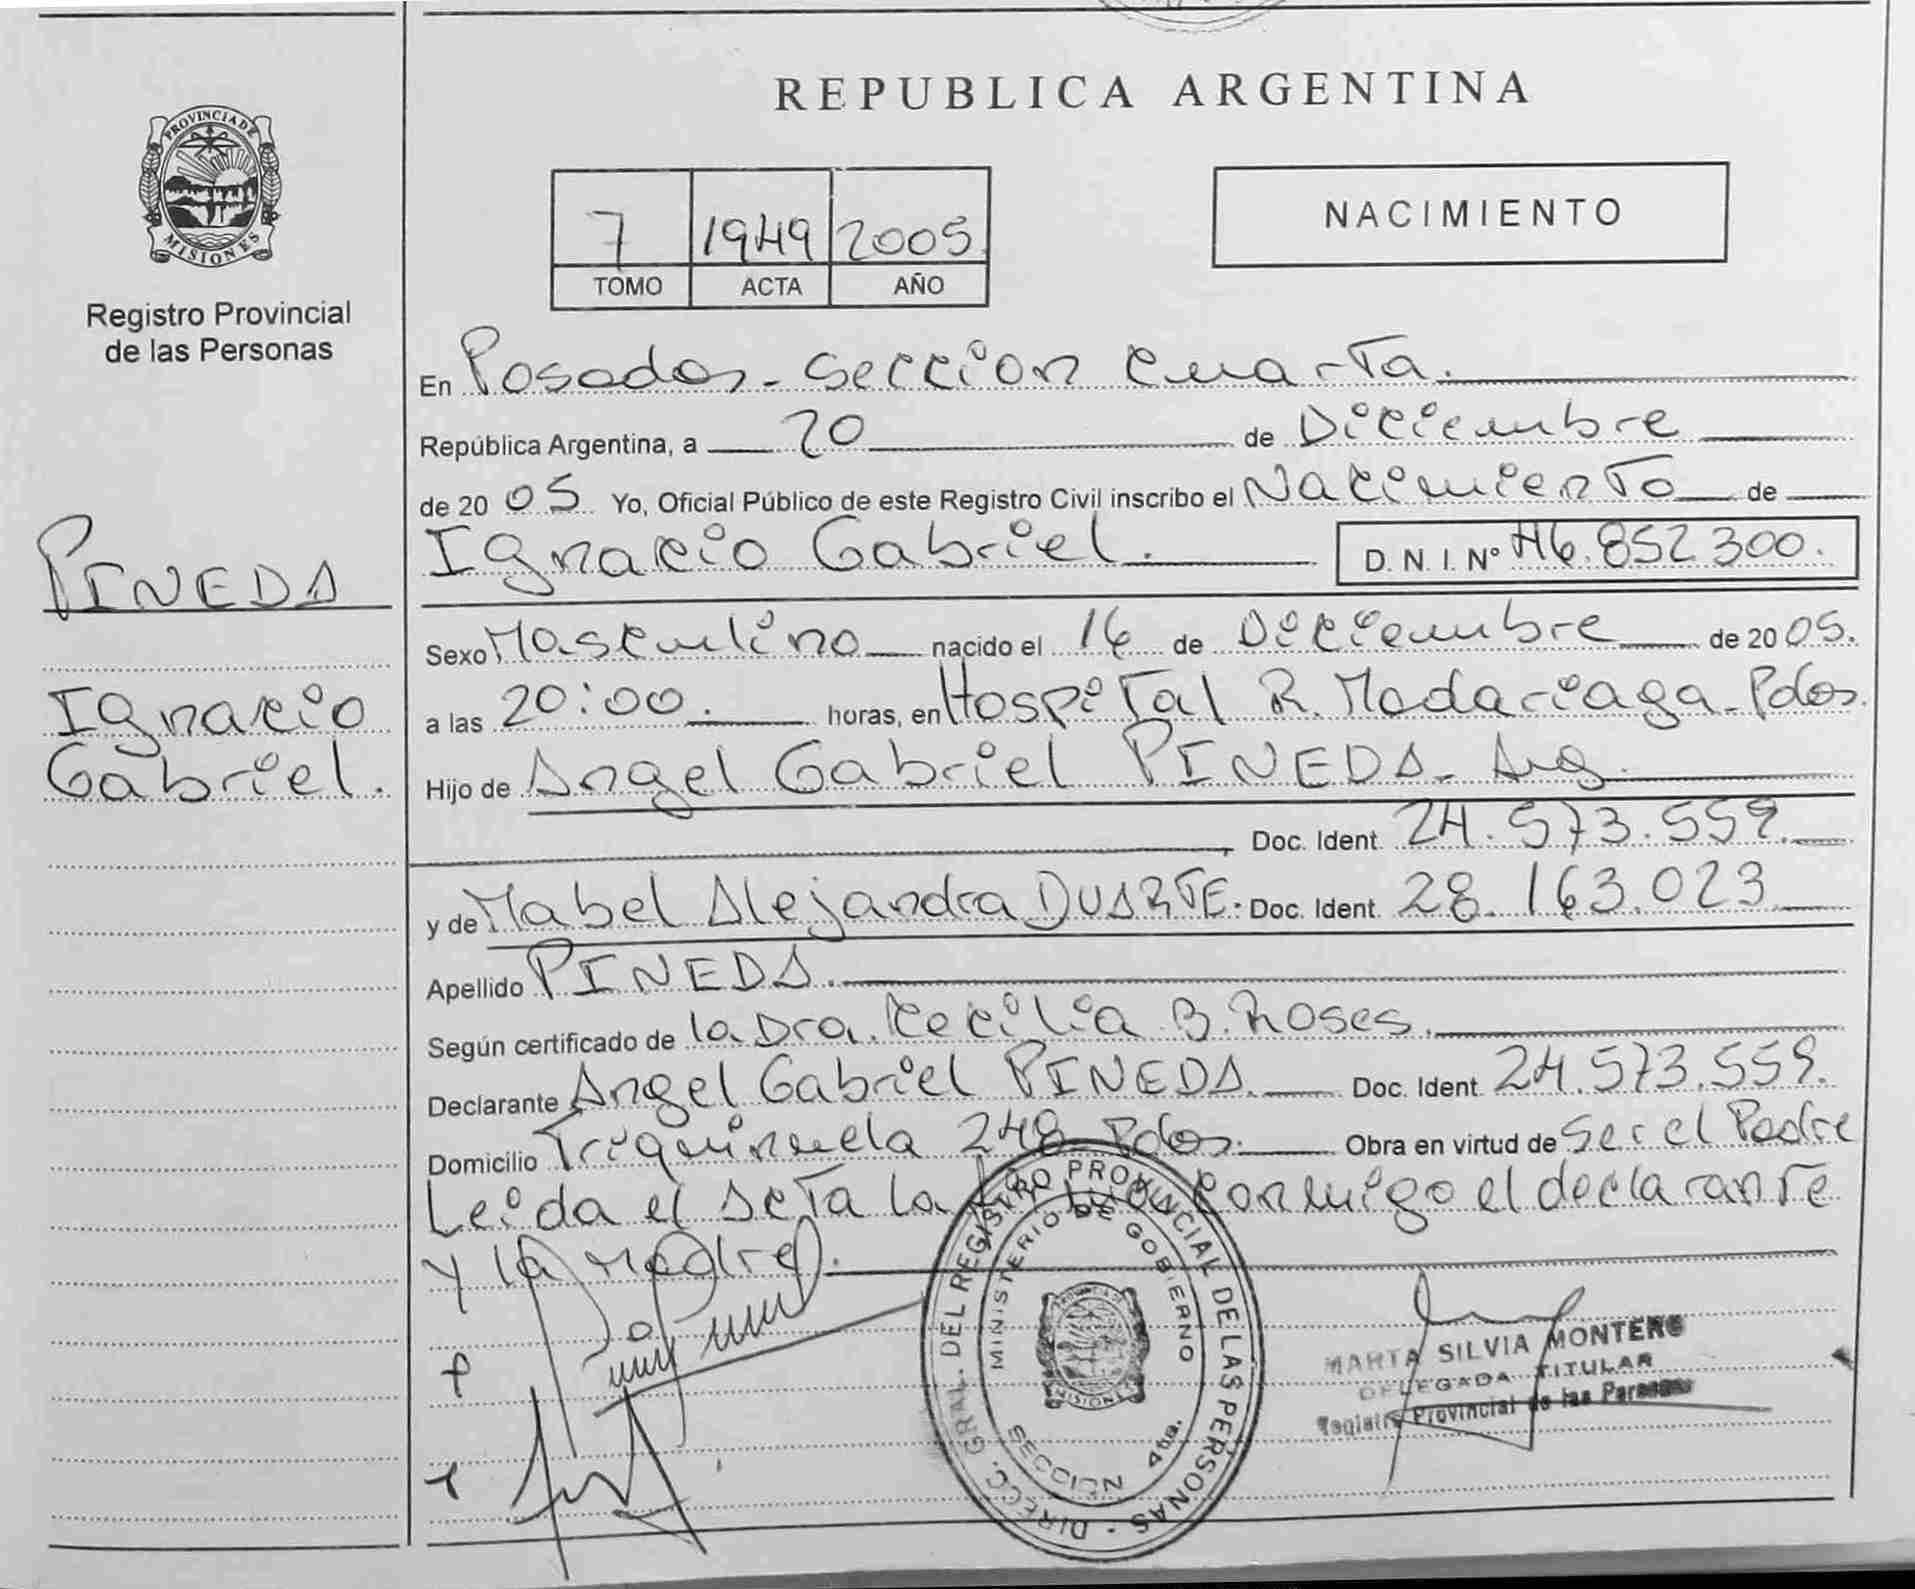 REPUBLICA ARGENTINA
PROVINCIA DE
MISIONES
Registro Provincial
de las Personas
7 1949 2005
TOMO ACTA AÑO
NACIMIENTO
PINEDA
Ignacio
Gabriel.
En Posadas - Seccion Cuarta.
República Argentina, a 20 de Diciembre
de 2005 Yo, Oficial Público de este Registro Civil inscribo el Nacimiento de
Ignacio Gabriel. D. N. I. Nº 46.852300.
Sexo Masculino nacido el 16 de Diciembre de 2005.
a las 20:00. horas, en Hospital R. Madariaga - Pdas.
Hijo de Angel Gabriel PINEDA - Arg.
Doc. Ident. 24.573.559.
y de Mabel Alejandra DUARTE. Doc. Ident. 28.163.023
Apellido PINEDA.
Según certificado de la Dra. Cecilia B. Roses.
Declarante Angel Gabriel PINEDA. Doc. Ident. 24.573.559.
Domicilio Triquinuela 248 Pdas. Obra en virtud de Ser el Padre
Leida el Acta la conmigo el declarante
y la Madre.
DIRECC. GRAL. DEL REGISTRO PROVINCIAL DE LAS PERSONAS
MINISTERIO DE GOBIERNO
MISIONES
SECCION 4ta.
MARTA SILVIA MONTERO
DELEGADA TITULAR
Registro Provincial de las Personas